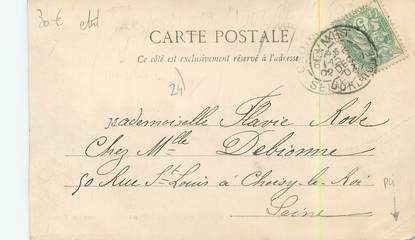 30 € etat
CARTE POSTALE
Ce côté est exclusivement réservé à l'adresse
24)
Mademoiselle Flavie Rode
Chez Mlle Debionne
50 Rue St Louis à Choisy-le-Roi
Seine